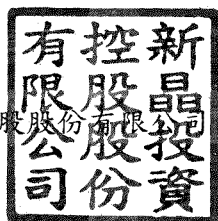 新晶投資
控股股份
有限公司
股股份有限公司